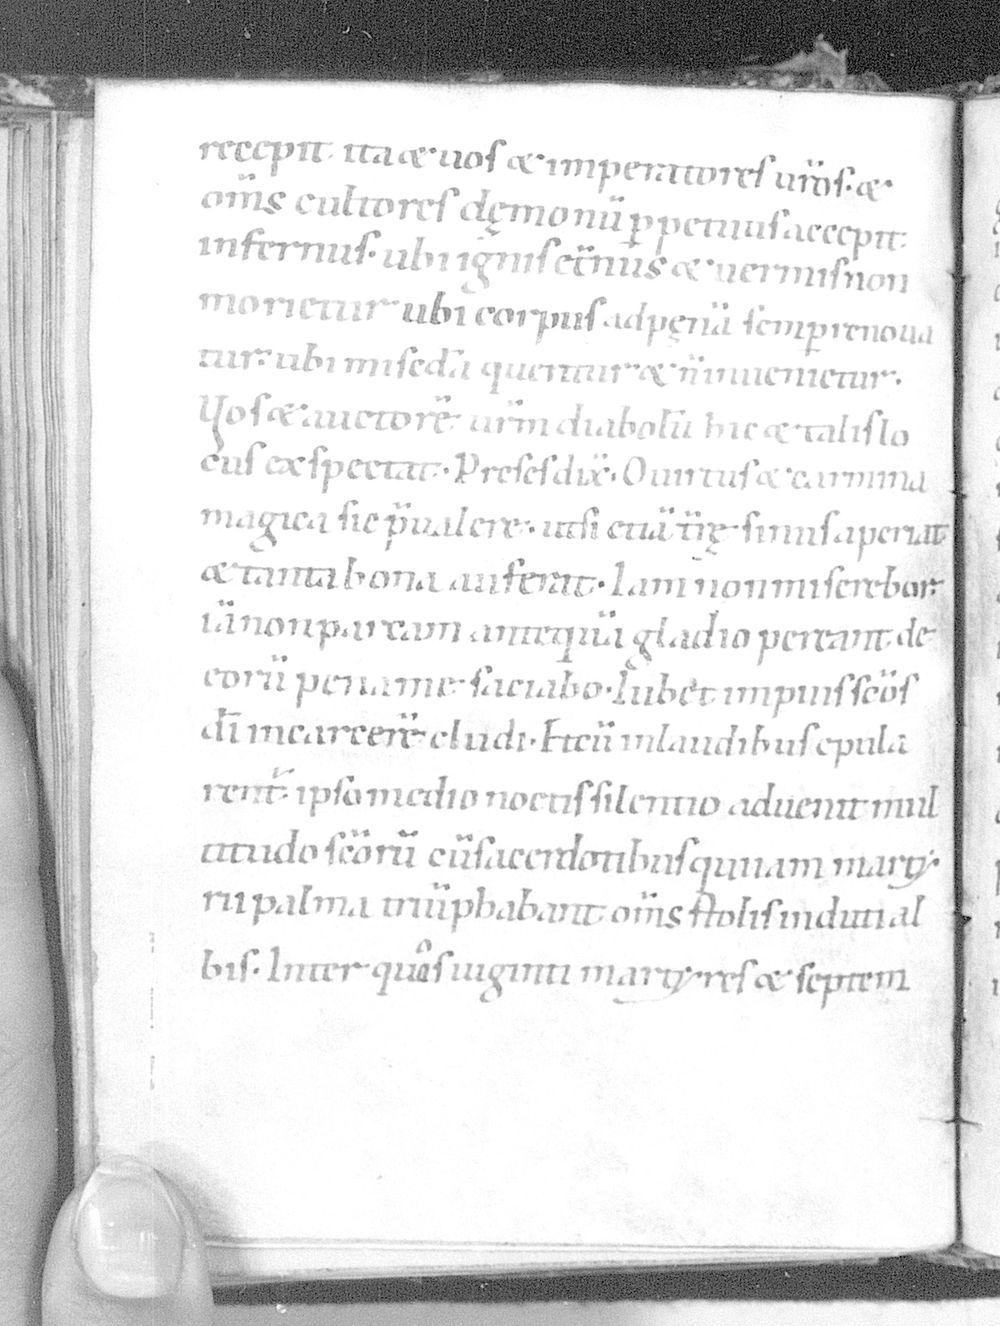 recepit. ita & uos & imperatores ur̄os. &
om̄s cultores dęmoniū ꝑpetuus accepit
infernus. ubi ignis et̄nus & uermis non
morietur ubi corpus ad pęnā semꝑ renoua
tur. ubi misc̄da queritur & n̄ inuenietur.
Vos & auctorē ur̄m diabolū hic & talis lo
cus exspectat. Preses dix̄. O uirtus & carmina
magica sic p̄ualere. ut si etiā t̄rę sinus aperiat
& tanta bona auferat. Iam non miserebor.
iā non parcam antequā gladio pereant de
eorū pena me saciabo. Iubet impius sc̄os
dī in carcerē cludi. Et cū in laudibus epulā
rent̄ ipso medio noctis silentio aduenit mul
titudo sc̄orū cū sacerdotibus qui iam marty
rii palma triūphabant om̄s stolis induti al
bis. Inter quos uiginti martyres & septem